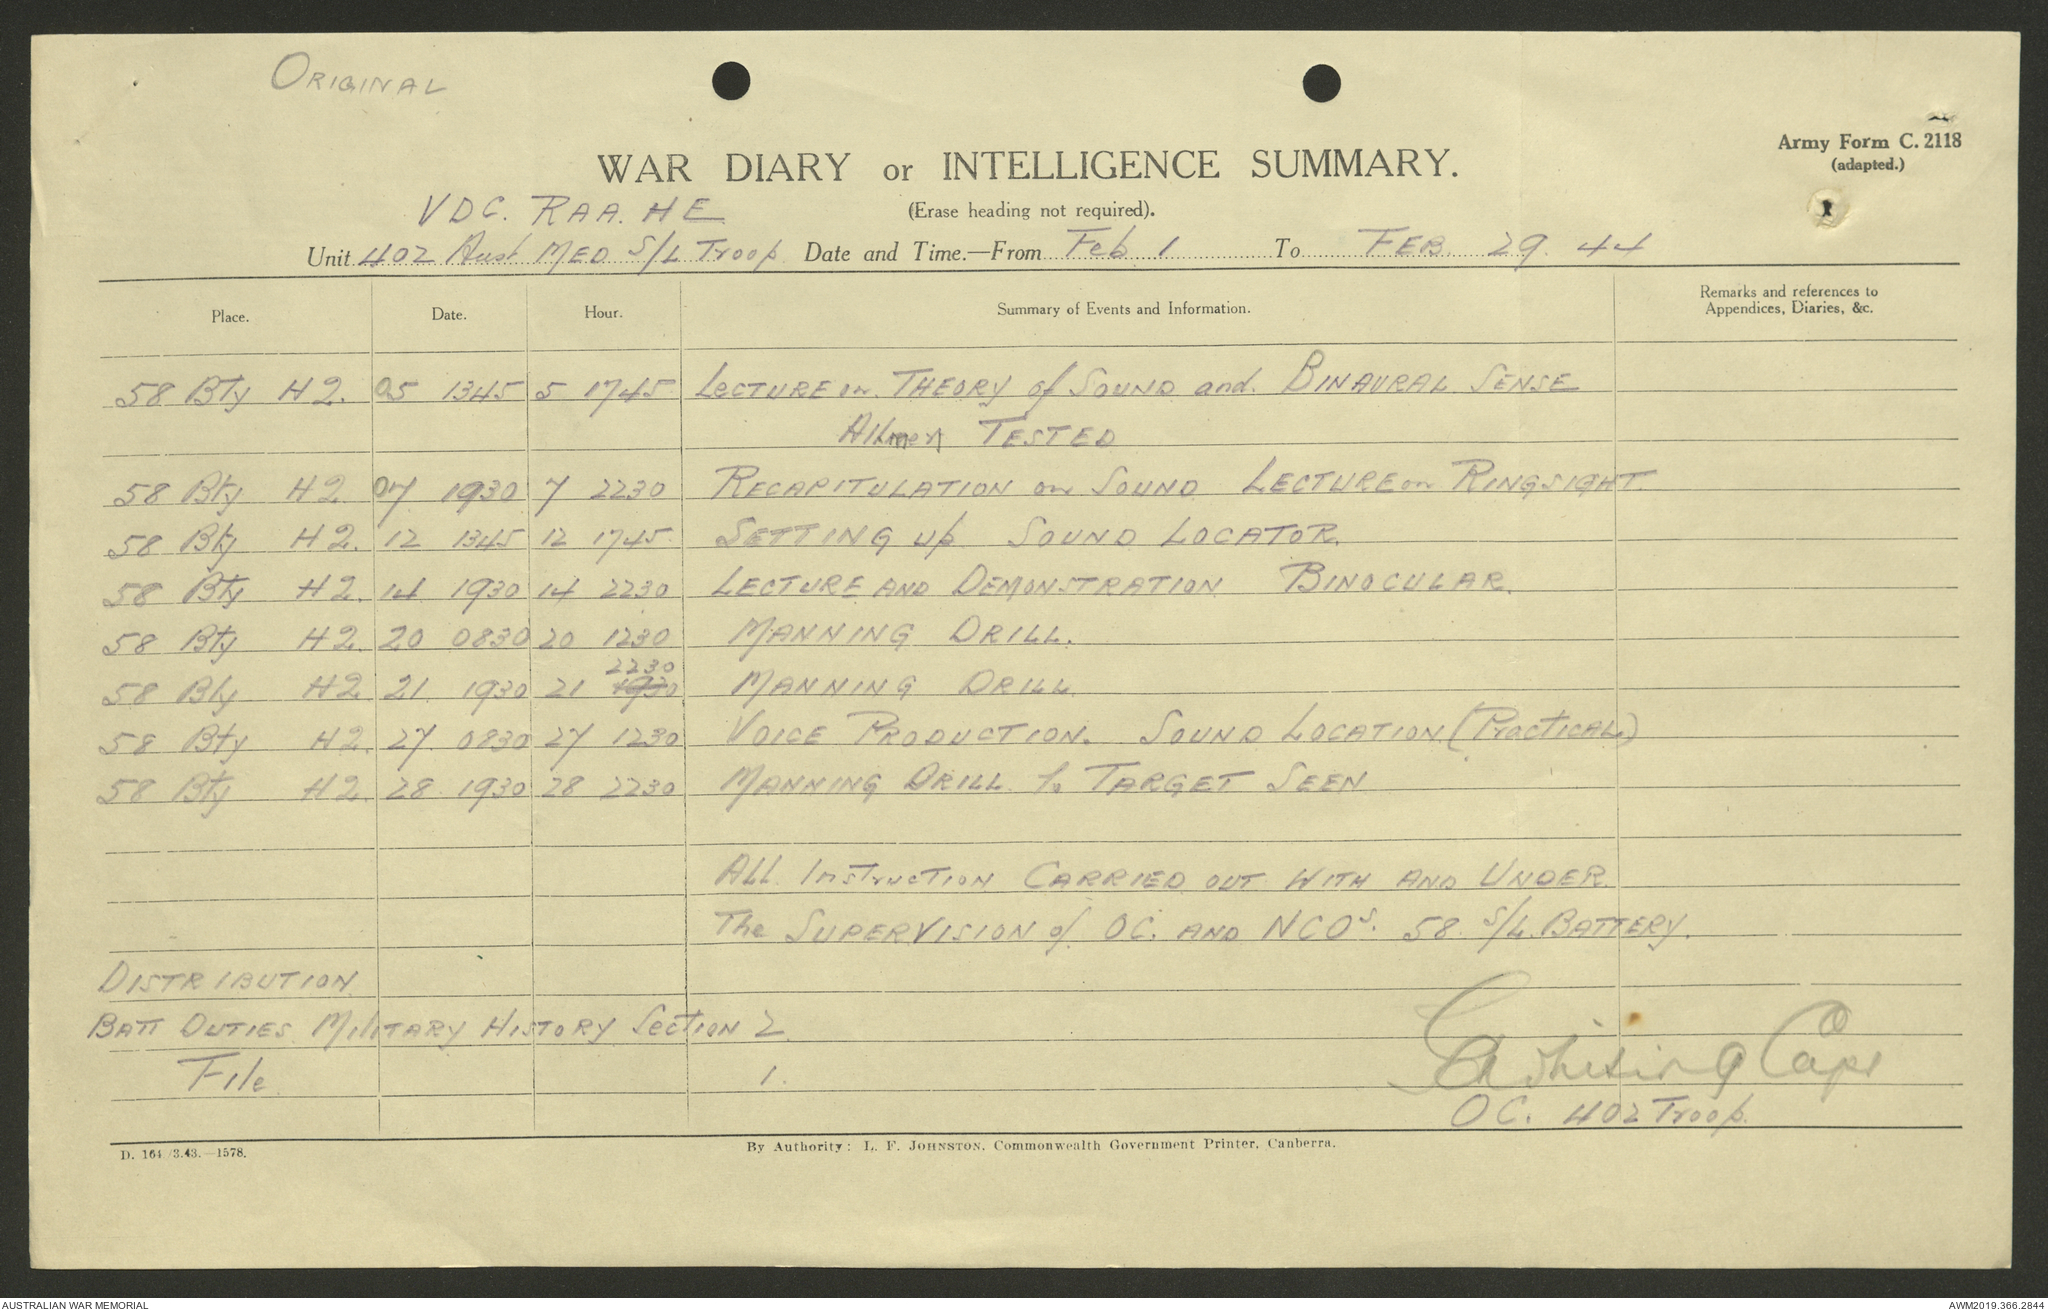 ORIGINAL
Army Form C. 2118
(adapted.)
WAR DIARY or INTELLIGENCE SUMMARY.
VDC. RAA. HE
(Erase heading not required).
Unit 402 Aust MED S/L Troop Date and Time.—From Feb 1 To FEB. 29. 44
Place. Date. Hour. Summary of Events and Information. Remarks and references to
Appendices, Diaries, &c.
58 Bty HQ. 05 1345 5 1745 LECTURE on THEORY of SOUND and. BINAURAL SENSE
All men TESTED
58 Bty HQ 07 1930 7 2230 RECAPITULATION on SOUND LECTURE on RINGSIGHT.
58 Bty HQ. 12 1345 12 1745 SETTING up SOUND LOCATOR.
58 Bty HQ. 14 1930 14 2230 LECTURE AND DEMONSTRATION BINOCULAR.
58 Bty HQ. 20 0830 20 1230 MANNING DRILL.
2230
58 Bty HQ 21 1930 21 1930 MANNING DRILL
58 Bty HQ. 27 0830 27 1230 VOICE PRODUCTION. SOUND LOCATION (PracticAL)
58 Bty HQ. 28 1930 28 2230 MANNING DRILL to TARGET SEEN
ALL InstrucTION CARRIED OUT WITH AND UNDER
The SUPERVISION of OC. AND NCOs. 58 S/L. BATTERY.
DISTRIBUTION
BATT DUTIES MILITARY HISTORY Section 2
File 1.
Capt
OC. 402 Troop.
D. 164/3.43.—1578.
By Authority: L. F. JOHNSTON, Commonwealth Government Printer, Canberra.
AUSTRALIAN WAR MEMORIAL
AWM2019.366.2844